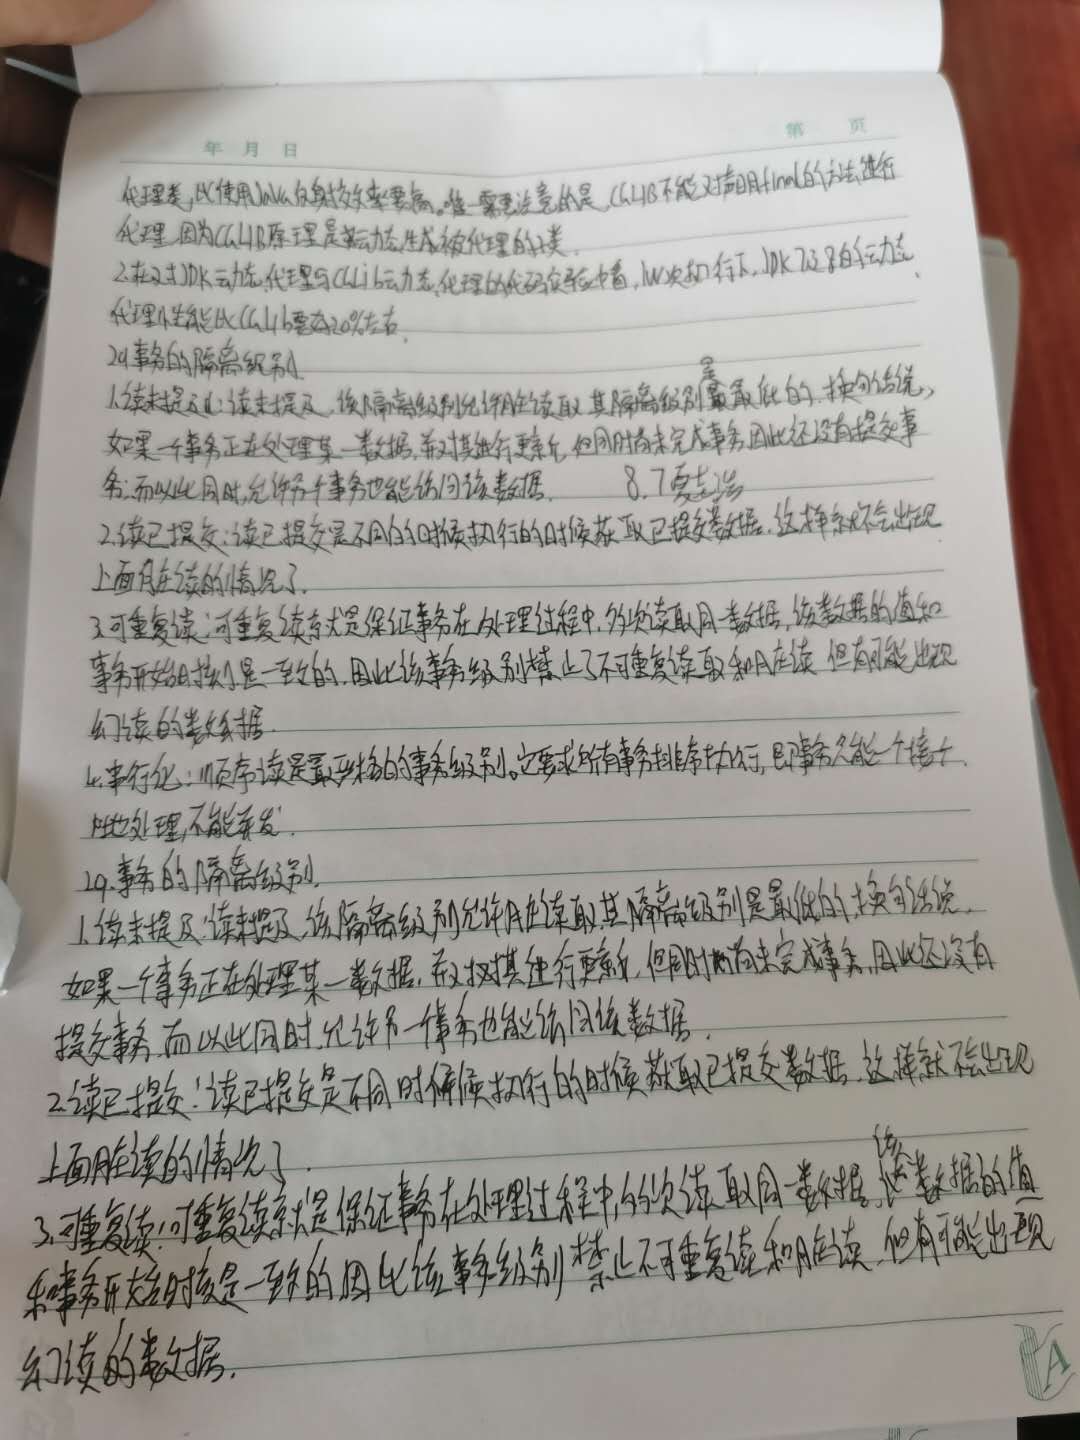 年 月 日
第 页
代理类,比使用Java反射效率要高。唯一需要注意的是,CGLIB不能对声明final的方法进行
代理,因为CGLIB原理是动态生成被代理的子类.
2.在对JDK动态代理与CGlib动态代理的代码实验中看,1W次执行下,JDK7及8的动态
代理性能比CGlib要好20%左右.
29事务的隔离级别.
1.读未提及:读未提及,该隔离级别允许脏读取其隔离级别是最低的.换句话说,
如果一个事务正在处理某一数据,并对其进行更新,但同时尚未完成事务,因此还没有提交事
务;而以此同时,允许另一个事务也能访问该数据. 8.7
2.读已提交:读已提交是不同的时候执行的时候获取已提交数据.这样就不会出现
上面脏读的情况了.
3.可重复读:可重复读就是保证事务在处理过程中,多次读取同一数据,该数据的值和
事务开始时刻是一致的.因此该事务级别禁止了不可重复读取和脏读 但有可能出现
幻读的数据.
4.串行化:顺序读是最严格的事务级别。它要求所有事务排序执行,即事务只能一个接一
个地处理,不能并发.
29.事务的隔离级别.
1.读未提及:读未提及,该隔离级别允许脏读取,其隔离级别是最低的.换句话说,
如果一个事务正在处理某一数据,并对其进行更新,但同时尚未完成事务,因此还没有
提交事务,而以此同时,允许另一个事务也能访问该数据.
2.读已提交:读已提交是不同时候执行的时候获取已提交数据,这样就不会出现
上面脏读的情况了.
3.可重复读:可重复读就是保证事务在处理过程中,多次读取同一数据,该数据的值
和事务开始时刻是一致的因此该事务级别禁止不可重复读和脏读,但有可能出现
幻读的数据.